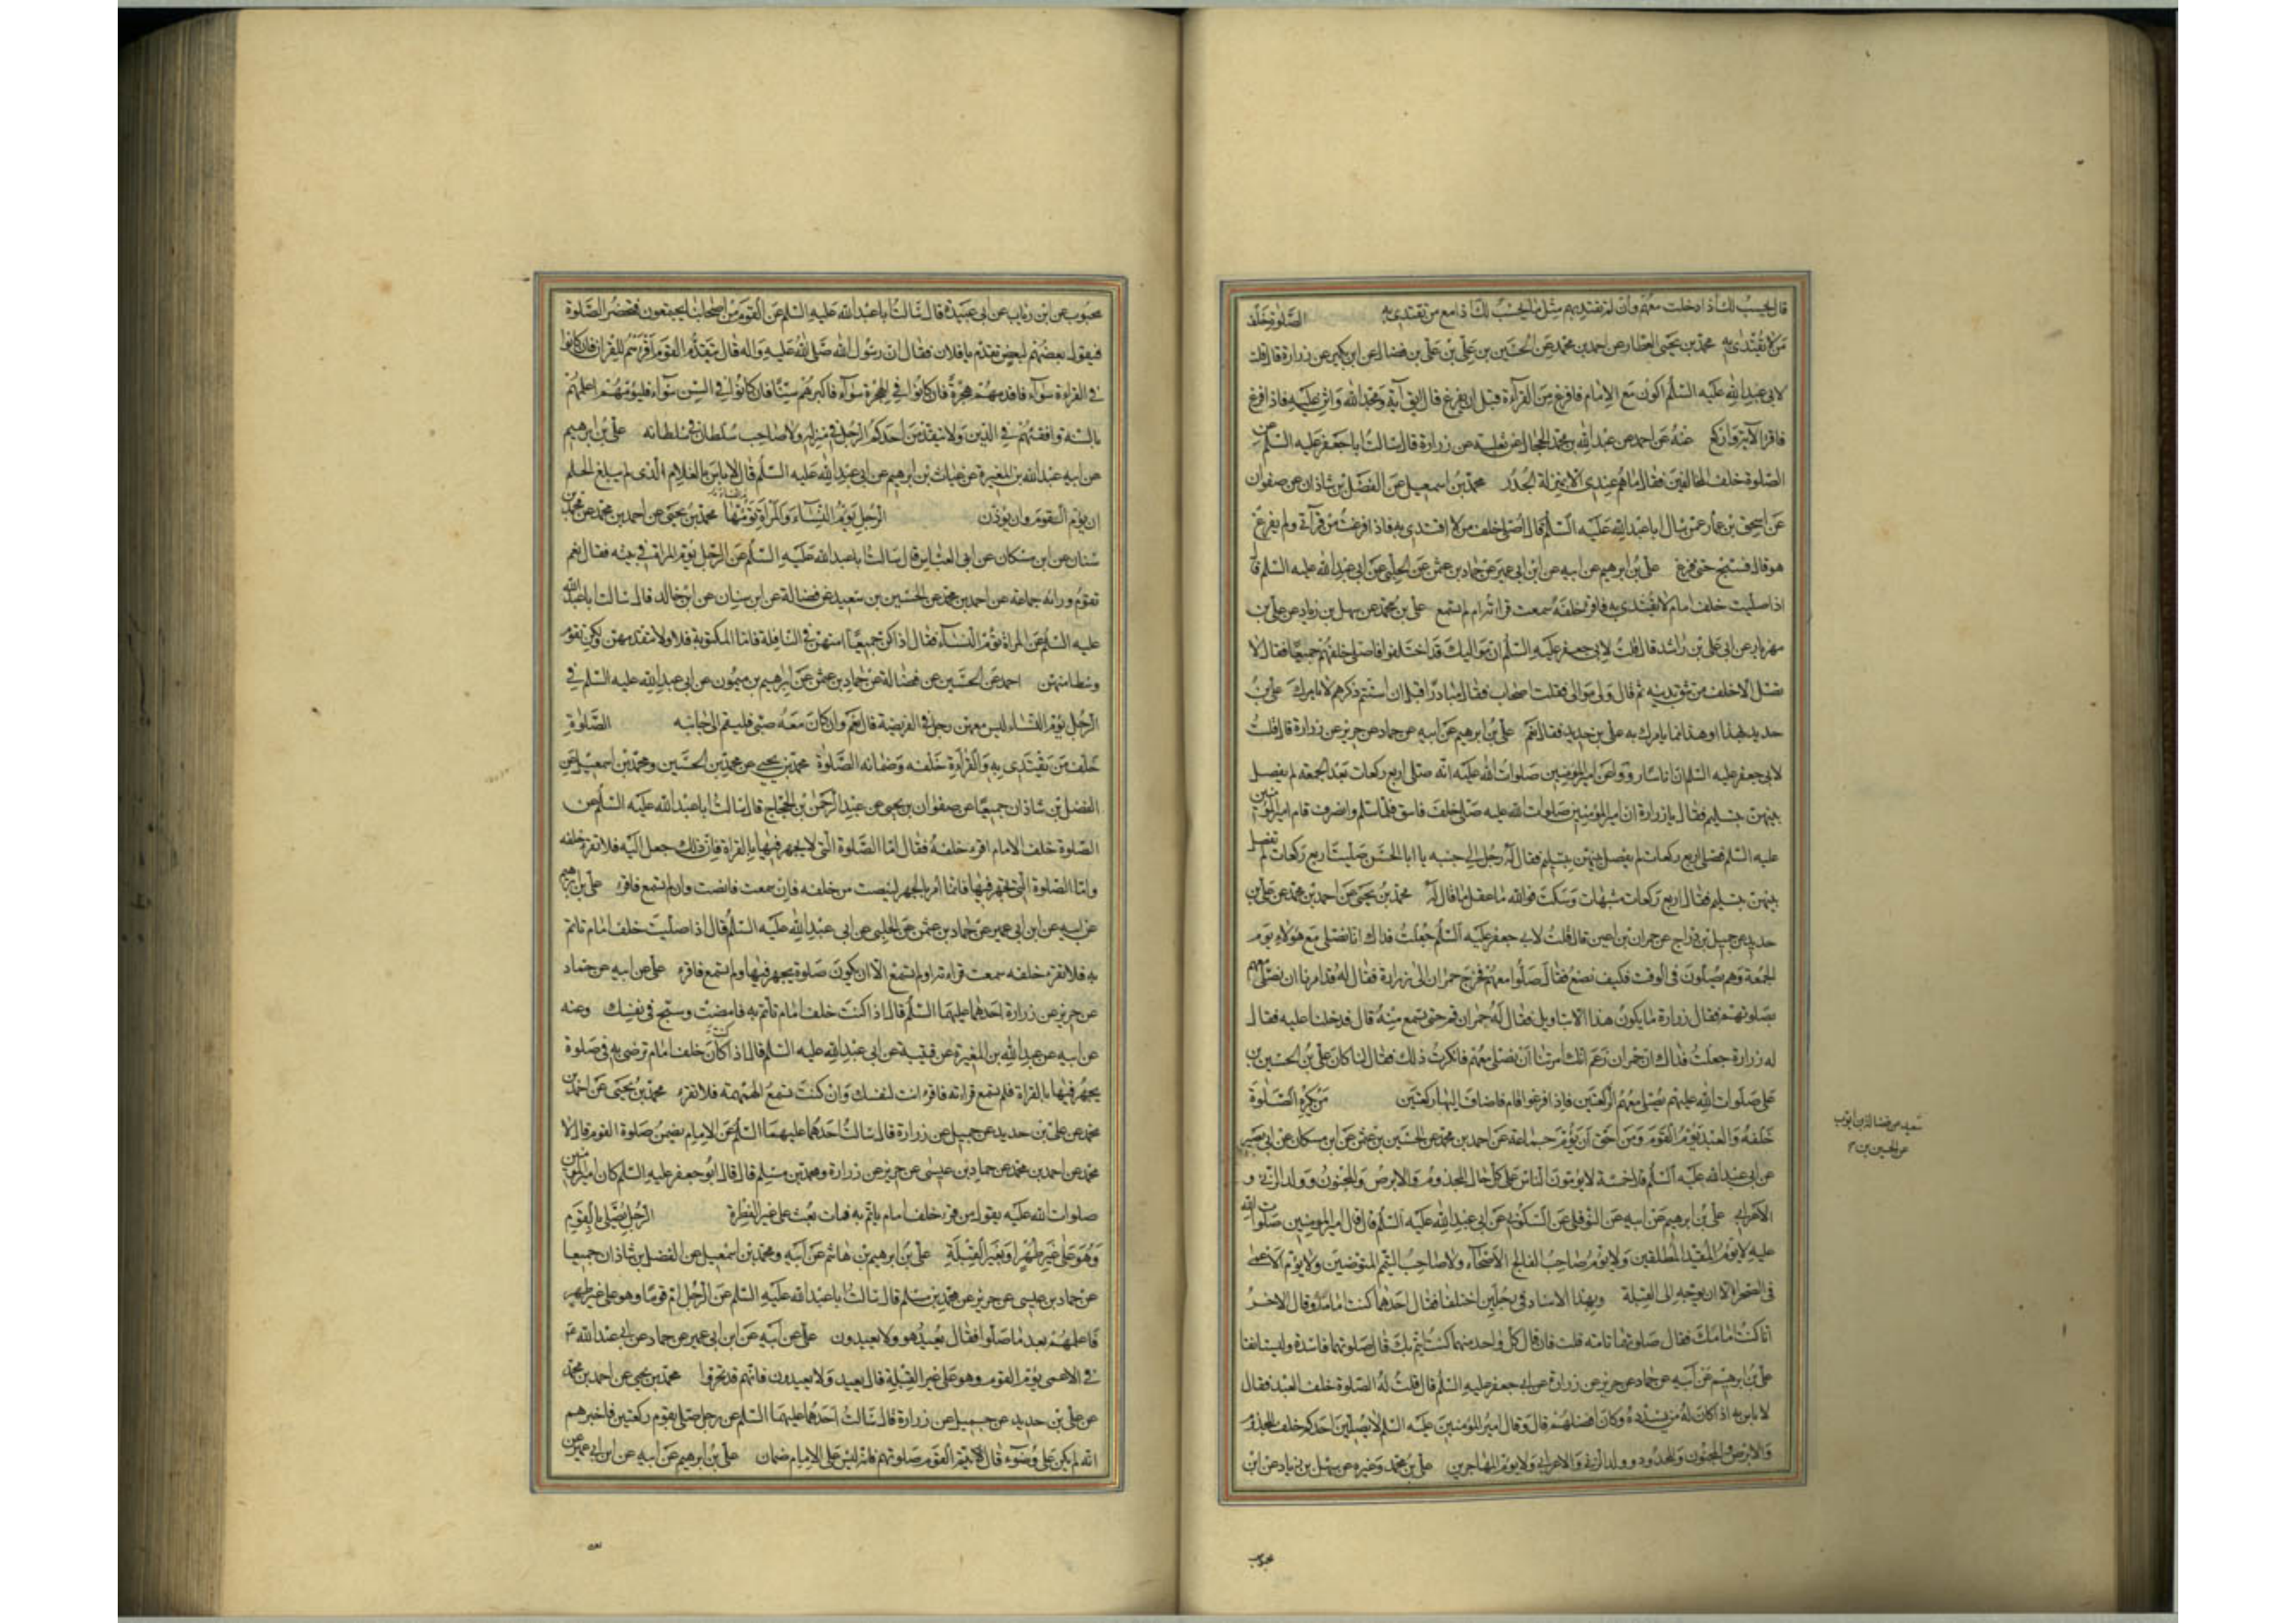 قال يحسب لك اذا دخلت معهم وان لم تقتد بهم مثل ما يحسب لك اذا مع من تقتدى به الصلوة خلف
من لا يقتدى به محمد بن يحيى العطار عن احمد بن محمد عن الحسين بن على بن على بن فضال عن ابن بكير عن زرارة قال قلت
لابى عبد الله عليه السلم اكون مع الامام فافرغ من القرآءة قبل ان يفرغ قال ابق آية ومجد الله واثن عليه فاذا فرغ
فاقرا الآية واركع عنه عن احمد عن عبد الله بن محمد الحجال عن ثعلبه عن زرارة قال سالت ابا جعفر عليه السلم عن
الصلوة خلف المخالفين فقال ما هم عندى الا بمنزلة الجدر محمد بن اسمعيل عن الفضل بن شاذان عن صفوان
عن اسحق بن عمار عمن سال ابا عبد الله عليه السلم قال اصلى خلف من لا اقتدى به فاذا فرغت من قرآتى ولم يفرغ
هو قال فسبح حتى يفرغ على بن ابرهيم عن ابيه عن ابن ابى عمير عن حماد بن عثمن عن الحلبى عن ابى عبد الله عليه السلم قا
اذا صليت خلف امام لا تقتدى به فاقرء خلفه سمعت قراءته ام لم تسمع على بن محمد عن سهل بن زياد عن على بن
مهزيار عن ابى على بن راشد قال قلت لابى جعفر عليه السلم ان مواليك قد اختلفوا فاصلى خلفهم جميعا فقال لا
تصل الا خلف من تثق بدينه ثم قال ولى موالى فقلت اصحاب فقال مبادرا قبل ان استتم ذكرهم لا يامرك على بن
حديد بهذا او هذا مما يامرك به على بن حديد فقال نعم على بن ابرهيم عن ابيه عن حماد عن حريز عن زرارة قال قلت
لابى جعفر عليه السلم ان اناسا رووا عن امير المؤمنين صلوات الله عليه انه صلى اربع ركعات بعد الجمعه لم يفصل
بينهن بتسليم فقال يا زرارة ان امير المؤمنين صلوات الله عليه صلى خلف فاسق فلما سلم وانصرف قام امير المؤمنين
عليه السلم فصلى اربع ركعات لم يفصل بينهن بتسليم فقال له رجل الى جنبه يا ابا الحسن صليت اربع ركعات لم تفصل
بينهن بتسليم فقال اربع ركعات مشبهات وسكت فوالله ما عقل ما قال له محمد بن يحيى عن احمد بن محمد عن على بن
حديد عن جميل بن دراج عن حمران بن اعين قال قلت لابى جعفر عليه السلم جعلت فداك انا نصلى مع هؤلاء يوم
الجمعة وهم يصلون فى الوقت فكيف نصنع فقال صلوا معهم فخرج حمران الى زرارة فقال له قد امرنا ان نصلى معهم
بصلوتهم فقال زرارة ما يكون هذا الا بتاويل فقال له حمران قم حتى تسمع منه قال فدخلنا عليه فقال
له زرارة جعلت فداك ان حمران زعم انك امرتنا ان نصلى معهم فانكرت ذلك فقال لنا كان على بن الحسين بن
على صلوات الله عليهم يصلى معهم الركعتين فاذا فرغوا قام فاضاف اليها ركعتين من تكره الصلوة
خلفه والعبد يؤم القوم ومن احق ان يؤم جماعة عن احمد بن محمد عن الحسين بن عثمن عن ابن مسكان عن ابى بصير
عن ابى عبد الله عليه السلم قال خمسة لا يؤمون الناس على كل حال المجذوم والابرص والمجنون وولد الزنى و
الاعرابى على بن ابرهيم عن ابيه عن النوفلى عن السكونى عن ابى عبد الله عليه السلم قال قال امير المؤمنين صلوات الله
عليه لا يؤم المقيد المطلقين ولا يؤم صاحب الفالج الاصحآء ولا صاحب التيمم المتوضئين ولا يؤم الاعمى
فى الصحرآء الا ان يوجه الى القبلة وبهذا الاسناد فى رجلين اختلفا فقال احدهما كنت امامك وقال الاخر
انا كنت امامك فقال صلوتهما تامه قلت فان قال كل واحد منهما كنت ايتم بك قال صلوتهما فاسدة وليستانفا
على بن ابرهيم عن ابيه عن حماد عن حريز عن زرارة عن ابى جعفر عليه السلم قال قلت له الصلوة خلف العبد فقال
لا باس به اذا كان فقيها وكان افضلهم قال وقال امير المؤمنين عليه السلم لا يصلين احدكم خلف المجذوم
والابرص والمجنون والمحدود وولد الزنى والاعرابى ولا يؤم المهاجرين على بن محمد وغيره عن سهل بن زياد عن ابن
سعيد عن فضالة بن ايوب
عن الحسين بن
محبوب
محبوب عن ابن رئاب عن ابى عبيدة قال سالت ابا عبد الله عليه السلم عن القوم من اصحابنا يجتمعون فتحضر الصلوة
فيقول بعضهم لبعض تقدم يا فلان فقال ان رسول الله صلى الله عليه واله قال يتقدم القوم اقرؤهم للقران فان كانوا
فى القراءة سوآء فاقدمهم هجرة فان كانوا فى الهجرة سوآء فاكبرهم سنا فان كانوا فى السن سوآء فليؤمهم اعلمهم
بالسنه وافقههم فى الدين ولا يتقدمن احدكم الرجل فى منزله ولا صاحب سلطان فى سلطانه على بن ابرهيم
عن ابيه عبد الله بن المغيرة عن غياث بن ابرهيم عن ابى عبد الله عليه السلم قال لا باس بالغلام الذى لم يبلغ الحلم
ان يؤم القوم وان يؤذن الرجل يؤم النسآء والمرأة تؤم النساء محمد بن يحيى عن احمد بن محمد عن محمد بن
سنان عن ابن مسكان عن ابى العباس قال سالت ابا عبد الله عليه السلم عن الرجل يؤم المراة فى بيته فقال نعم
تقوم ورائه جماعه عن احمد بن محمد عن الحسين بن سعيد عن فضالة عن ابن سنان عن ابن خالد قال سالت ابا عبد الله
عليه السلم عن المراة تؤم النسآء فقال اذا كن جميعا امتهن فى النافلة فاما المكتوبة فلا ولا تتقدمهن ولكن تقوم
وسطا منهن احمد عن الحسين عن فضالة عن حماد بن عثمن عن ابرهيم بن ميمون عن ابى عبد الله عليه السلم فى
الرجل يؤم النساء ليس معهن رجل فى الفريضة قال نعم وان كان معه صبى فليقم الى جانبه الصلوة
خلف من يقتدى به والقراءة خلفه وضمانه الصلوة محمد بن يحيى عن محمد بن الحسين ومحمد بن اسمعيل عن
الفضل بن شاذان جميعا عن صفوان بن يحيى عن عبد الرحمن بن الحجاج قال سالت ابا عبد الله عليه السلم عن
الصلوة خلف الامام اقرء خلفه فقال اما الصلوة التى لا يجهر فيها بالقراة فان ذلك جعل اليه فلا تقرء خلفه
واما الصلوة التى تجهر فيها فانما امر بالجهر لينصت من خلفه فان سمعت فانصت وان لم تسمع فاقرء على بن ابرهيم
عن ابيه عن ابن ابى عمير عن حماد بن عثمن عن الحلبى عن ابى عبد الله عليه السلم قال اذا صليت خلف امام تاتم
به فلا تقرء خلفه سمعت قراءته او لم تسمع الا ان يكون صلوة يجهر فيها ولم تسمع فاقرء على عن ابيه عن حماد
عن حريز عن زرارة احدهما عليهما السلم قال اذا كنت خلف امام تاتم به فانصت وسبح فى نفسك وعنه
عن ابيه عن عبد الله بن المغيرة عن قتيبة عن ابى عبد الله عليه السلم قال اذا كنت خلف امام ترضى به فى صلوة
يجهر فيها بالقراة فلم تسمع قراءته فاقرء انت لنفسك وان كنت تسمع الهمهمه فلا تقرء محمد بن يحيى عن احمد بن
محمد عن على بن حديد عن جميل عن زرارة قال سالت احدهما عليهما السلم عن الامام يضمن صلوة القوم قال لا
محمد عن احمد بن محمد عن حماد بن عيسى عن حريز عن زرارة ومحمد بن مسلم قال قال ابو جعفر عليه السلم كان امير المؤمنين
صلوات الله عليه يقول من قرء خلف امام ياتم به فمات بعث على غير الفطرة الرجل يصلى بالقوم
وهو على غير طهر او لغير القبلة على بن ابرهيم بن هاشم عن ابيه ومحمد بن اسمعيل عن الفضل بن شاذان جميعا
عن حماد بن عيسى عن حريز عن محمد بن مسلم قال سالت ابا عبد الله عليه السلم عن الرجل ام قوما وهو على غير طهر
فاعلمهم بعد ما صلوا فقال يعيد هو ولا يعيدون على عن ابيه عن ابن ابى عمير عن حماد عن ابى عبد الله ع
فى الاعمى يؤم القوم وهو على غير القبلة قال يعيد ولا يعيدون فانهم قد تحروا محمد بن يحيى عن احمد بن محمد
عن على بن حديد عن جميل عن زرارة قال سالت احدهما عليهما السلم عن رجل صلى بقوم ركعتين فاخبرهم
انه لم يكن على وضوء قال يتم القوم صلوتهم فانه ليس على الامام ضمان على بن ابرهيم عن ابيه عن ابن ابى عمير عن